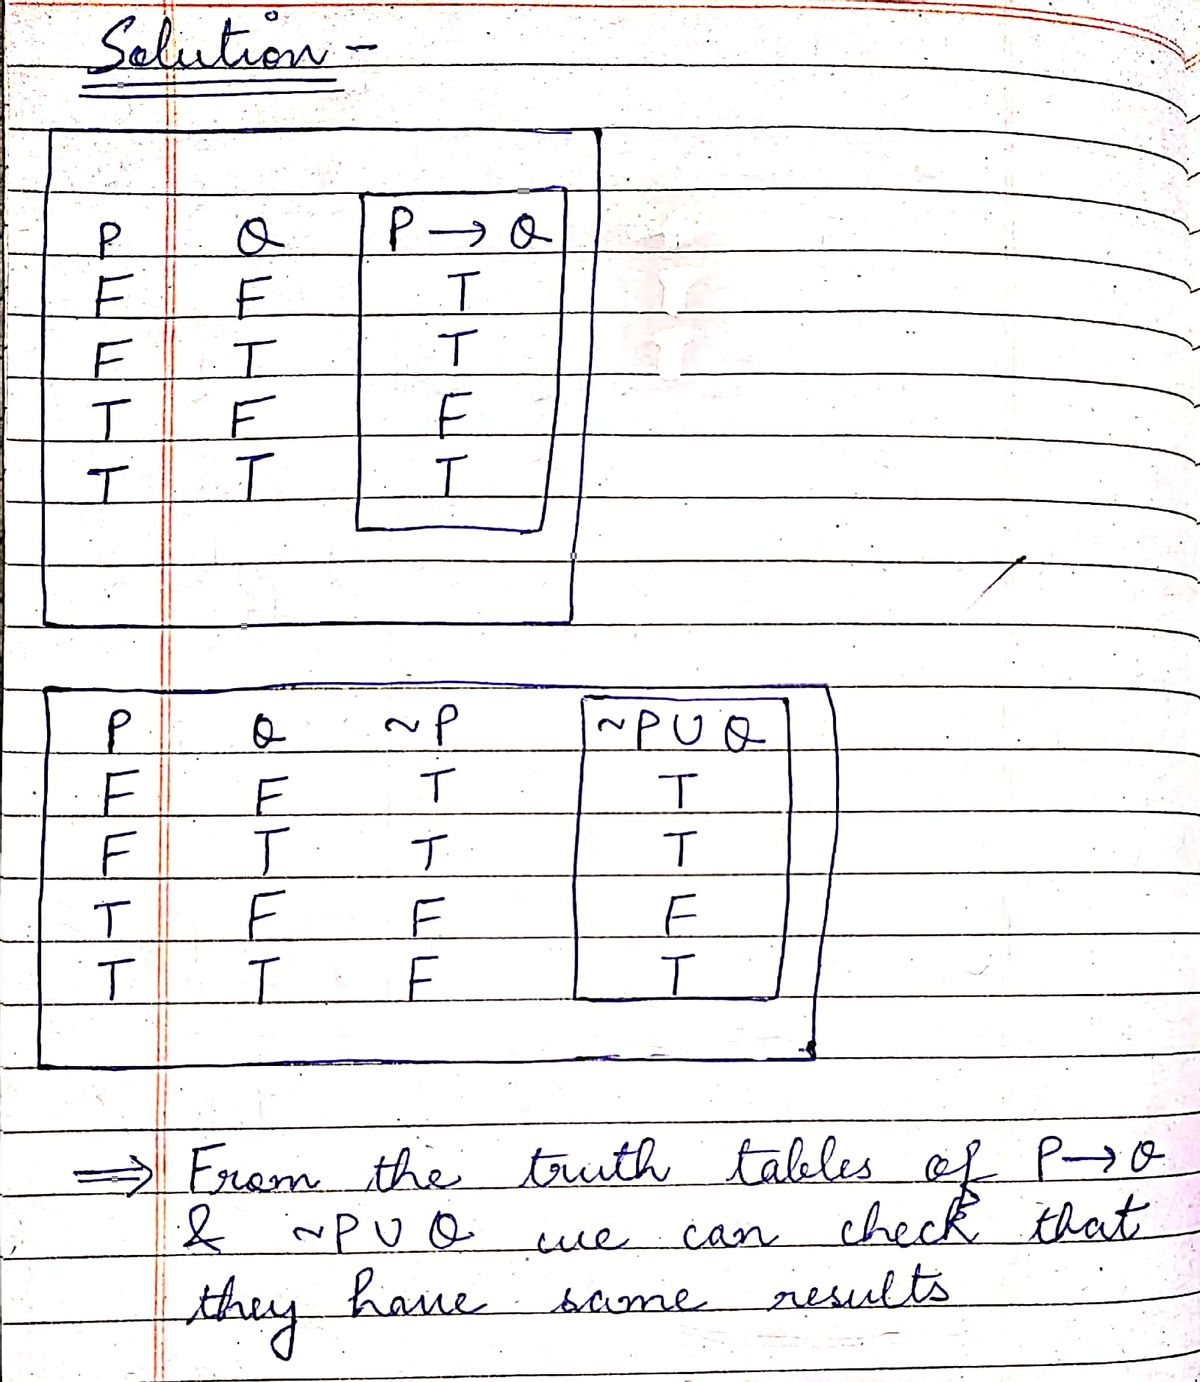 Solution -
P Q P → Q
F F T
F T T
T F F
T T T
P Q ~P ~P U Q
F F T T
F T T T
T F F F
T T F T
⇒ From the truth tables of P→Q
& ~P U Q we can check that
they have same results